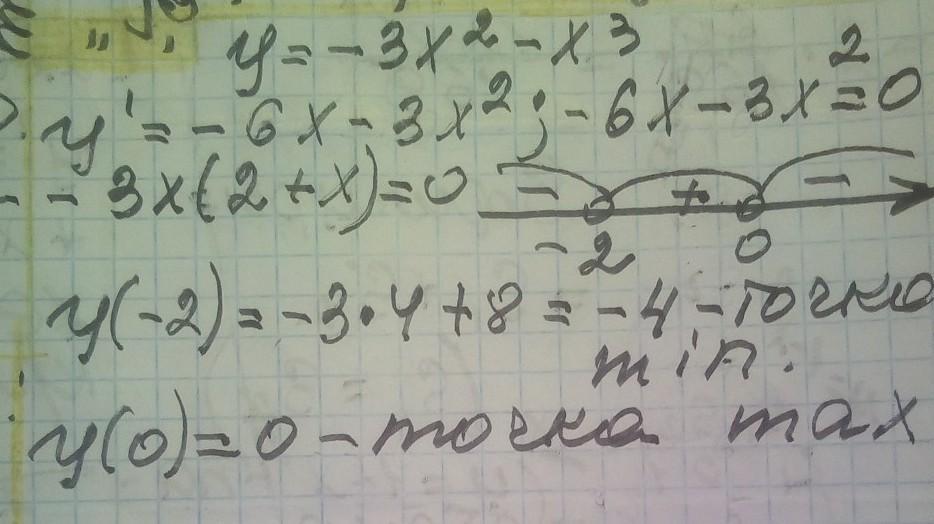 y = -3x² - x³
y' = -6x - 3x²; -6x - 3x² = 0
- 3x(2 + x) = 0 - + -
-2 0
y(-2) = -3·4 + 8 = -4 - точка
min.
y(0) = 0 - точка max